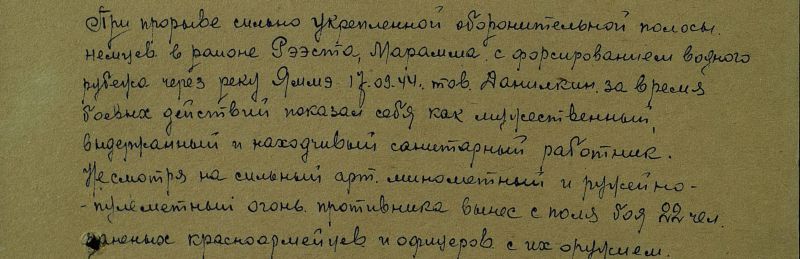 При прорыве сильно укрепленной оборонительной полосы
немцев в районе Рээста, Марамма с форсированием водного
рубежа через реку Яммэ 17.09.44. тов. Данилкин за время
боевых действий показал себя как мужественный,
выдержанный и находчивый санитарный работник.
Несмотря на сильный арт. минометный и ружейно-
-пулеметный огонь противника вынес с поля боя 22 чел.
раненых красноармейцев и офицеров с их оружием.